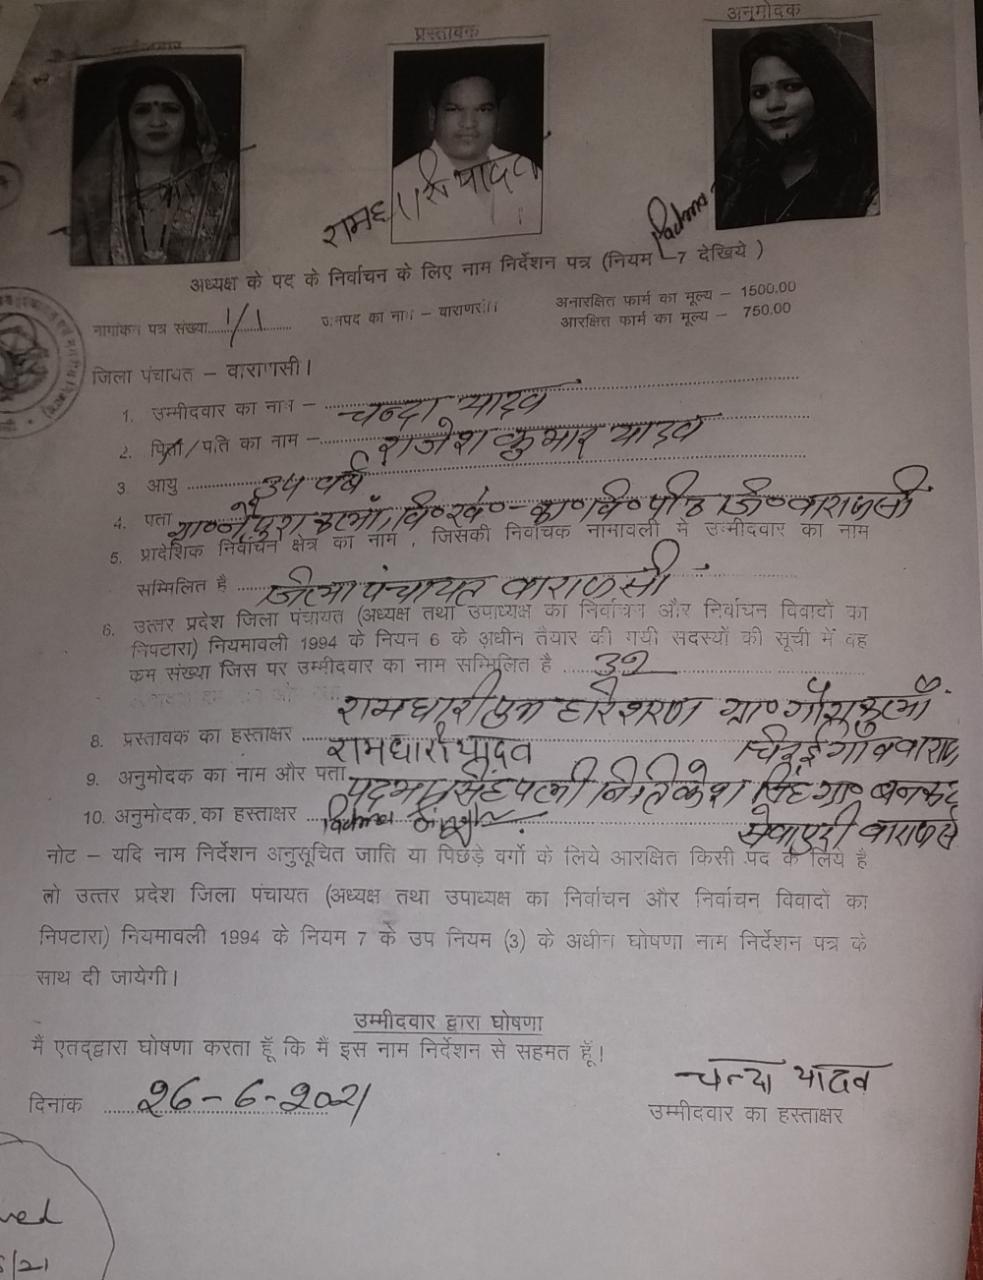 प्रस्तावक
अनुमोदक
रामधारी यादव
Padma
अध्यक्ष के पद के निर्वाचन के लिए नाम निर्देशन पत्र (नियम -7 देखिये )
नामांकन पत्र संख्या.....1/1.....
जनपद का नाम - वाराणसी।
अनारक्षित फार्म का मूल्य - 1500.00
आरक्षित फार्म का मूल्य - 750.00
जिला पंचायत - वाराणसी।
1. उम्मीदवार का नाम - चन्दा यादव
2. पिता/पति का नाम - राजेश कुमार यादव
3. आयु ..... 34 वर्ष
4. पता ग्रा० वि०ख०- का०वि०पीठ जि०-वाराणसी
5. प्रादेशिक निर्वाचन क्षेत्र का नाम , जिसकी निर्वाचक नामावली में उम्मीदवार का नाम
सम्मिलित है ..... जिला पंचायत वाराणसी
6. उत्तर प्रदेश जिला पंचायत (अध्यक्ष तथा उपाध्यक्ष का निर्वाचन और निर्वाचन विवादों का
निपटारा) नियमावली 1994 के नियम 6 के अधीन तैयार की गयी सदस्यों की सूची में वह
कम संख्या जिस पर उम्मीदवार का नाम सम्मिलित है .....
रामधारी पुत्र हरिशरण ग्रा०
8. प्रस्तावक का हस्ताक्षर ..... रामधारी यादव चिरईगांव वाराण
9. अनुमोदक का नाम और पता पत्नी सिंह ग्रा०
10. अनुमोदक का हस्ताक्षर ..... Padma सेवापुरी वाराणसी
नोट - यदि नाम निर्देशन अनुसूचित जाति या पिछड़े वर्गो के लिये आरक्षित किसी पद के लिये है
तो उत्तर प्रदेश जिला पंचायत (अध्यक्ष तथा उपाध्यक्ष का निर्वाचन और निर्वाचन विवादों का
निपटारा) नियमावली 1994 के नियम 7 के उप नियम (3) के अधीन घोषणा नाम निर्देशन पत्र के
साथ दी जायेगी।
उम्मीदवार द्वारा घोषणा
मैं एतद्द्वारा घोषणा करता हूँ कि मैं इस नाम निर्देशन से सहमत हूँ!
चन्दा यादव
दिनांक ..... 26-6-2021
उम्मीदवार का हस्ताक्षर